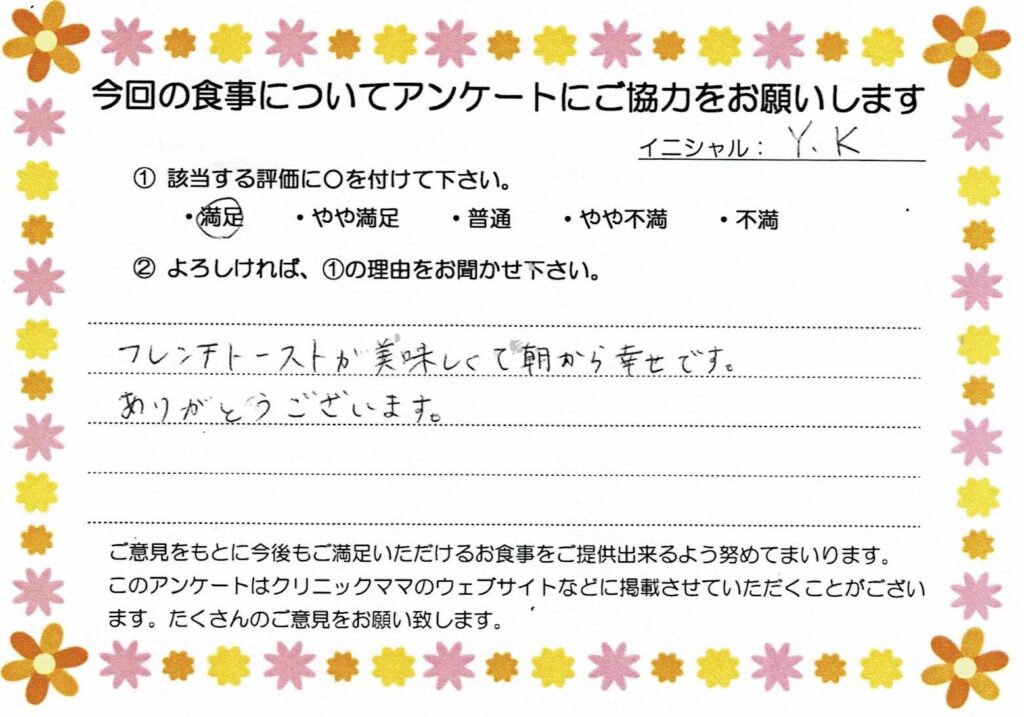 今回の食事についてアンケートにご協力をお願いします
イニシャル： Y.K
① 該当する評価に〇を付けて下さい。
・満足 ・やや満足 ・普通 ・やや不満 ・不満
② よろしければ、①の理由をお聞かせ下さい。
フレンチトーストが美味しくて朝から幸せです。
ありがとうございます。
ご意見をもとに今後もご満足いただけるお食事をご提供出来るよう努めてまいります。
このアンケートはクリニックママのウェブサイトなどに掲載させていただくことがござい
ます。たくさんのご意見をお願い致します。